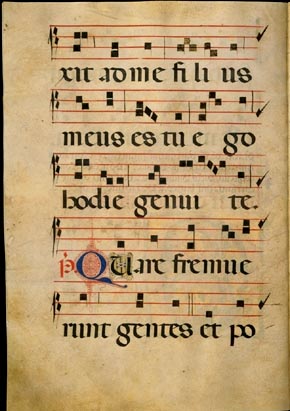 xit ad me fi li us
meus es tu e go
hodie genui te.
ps. Quare fremue
runt gentes et po